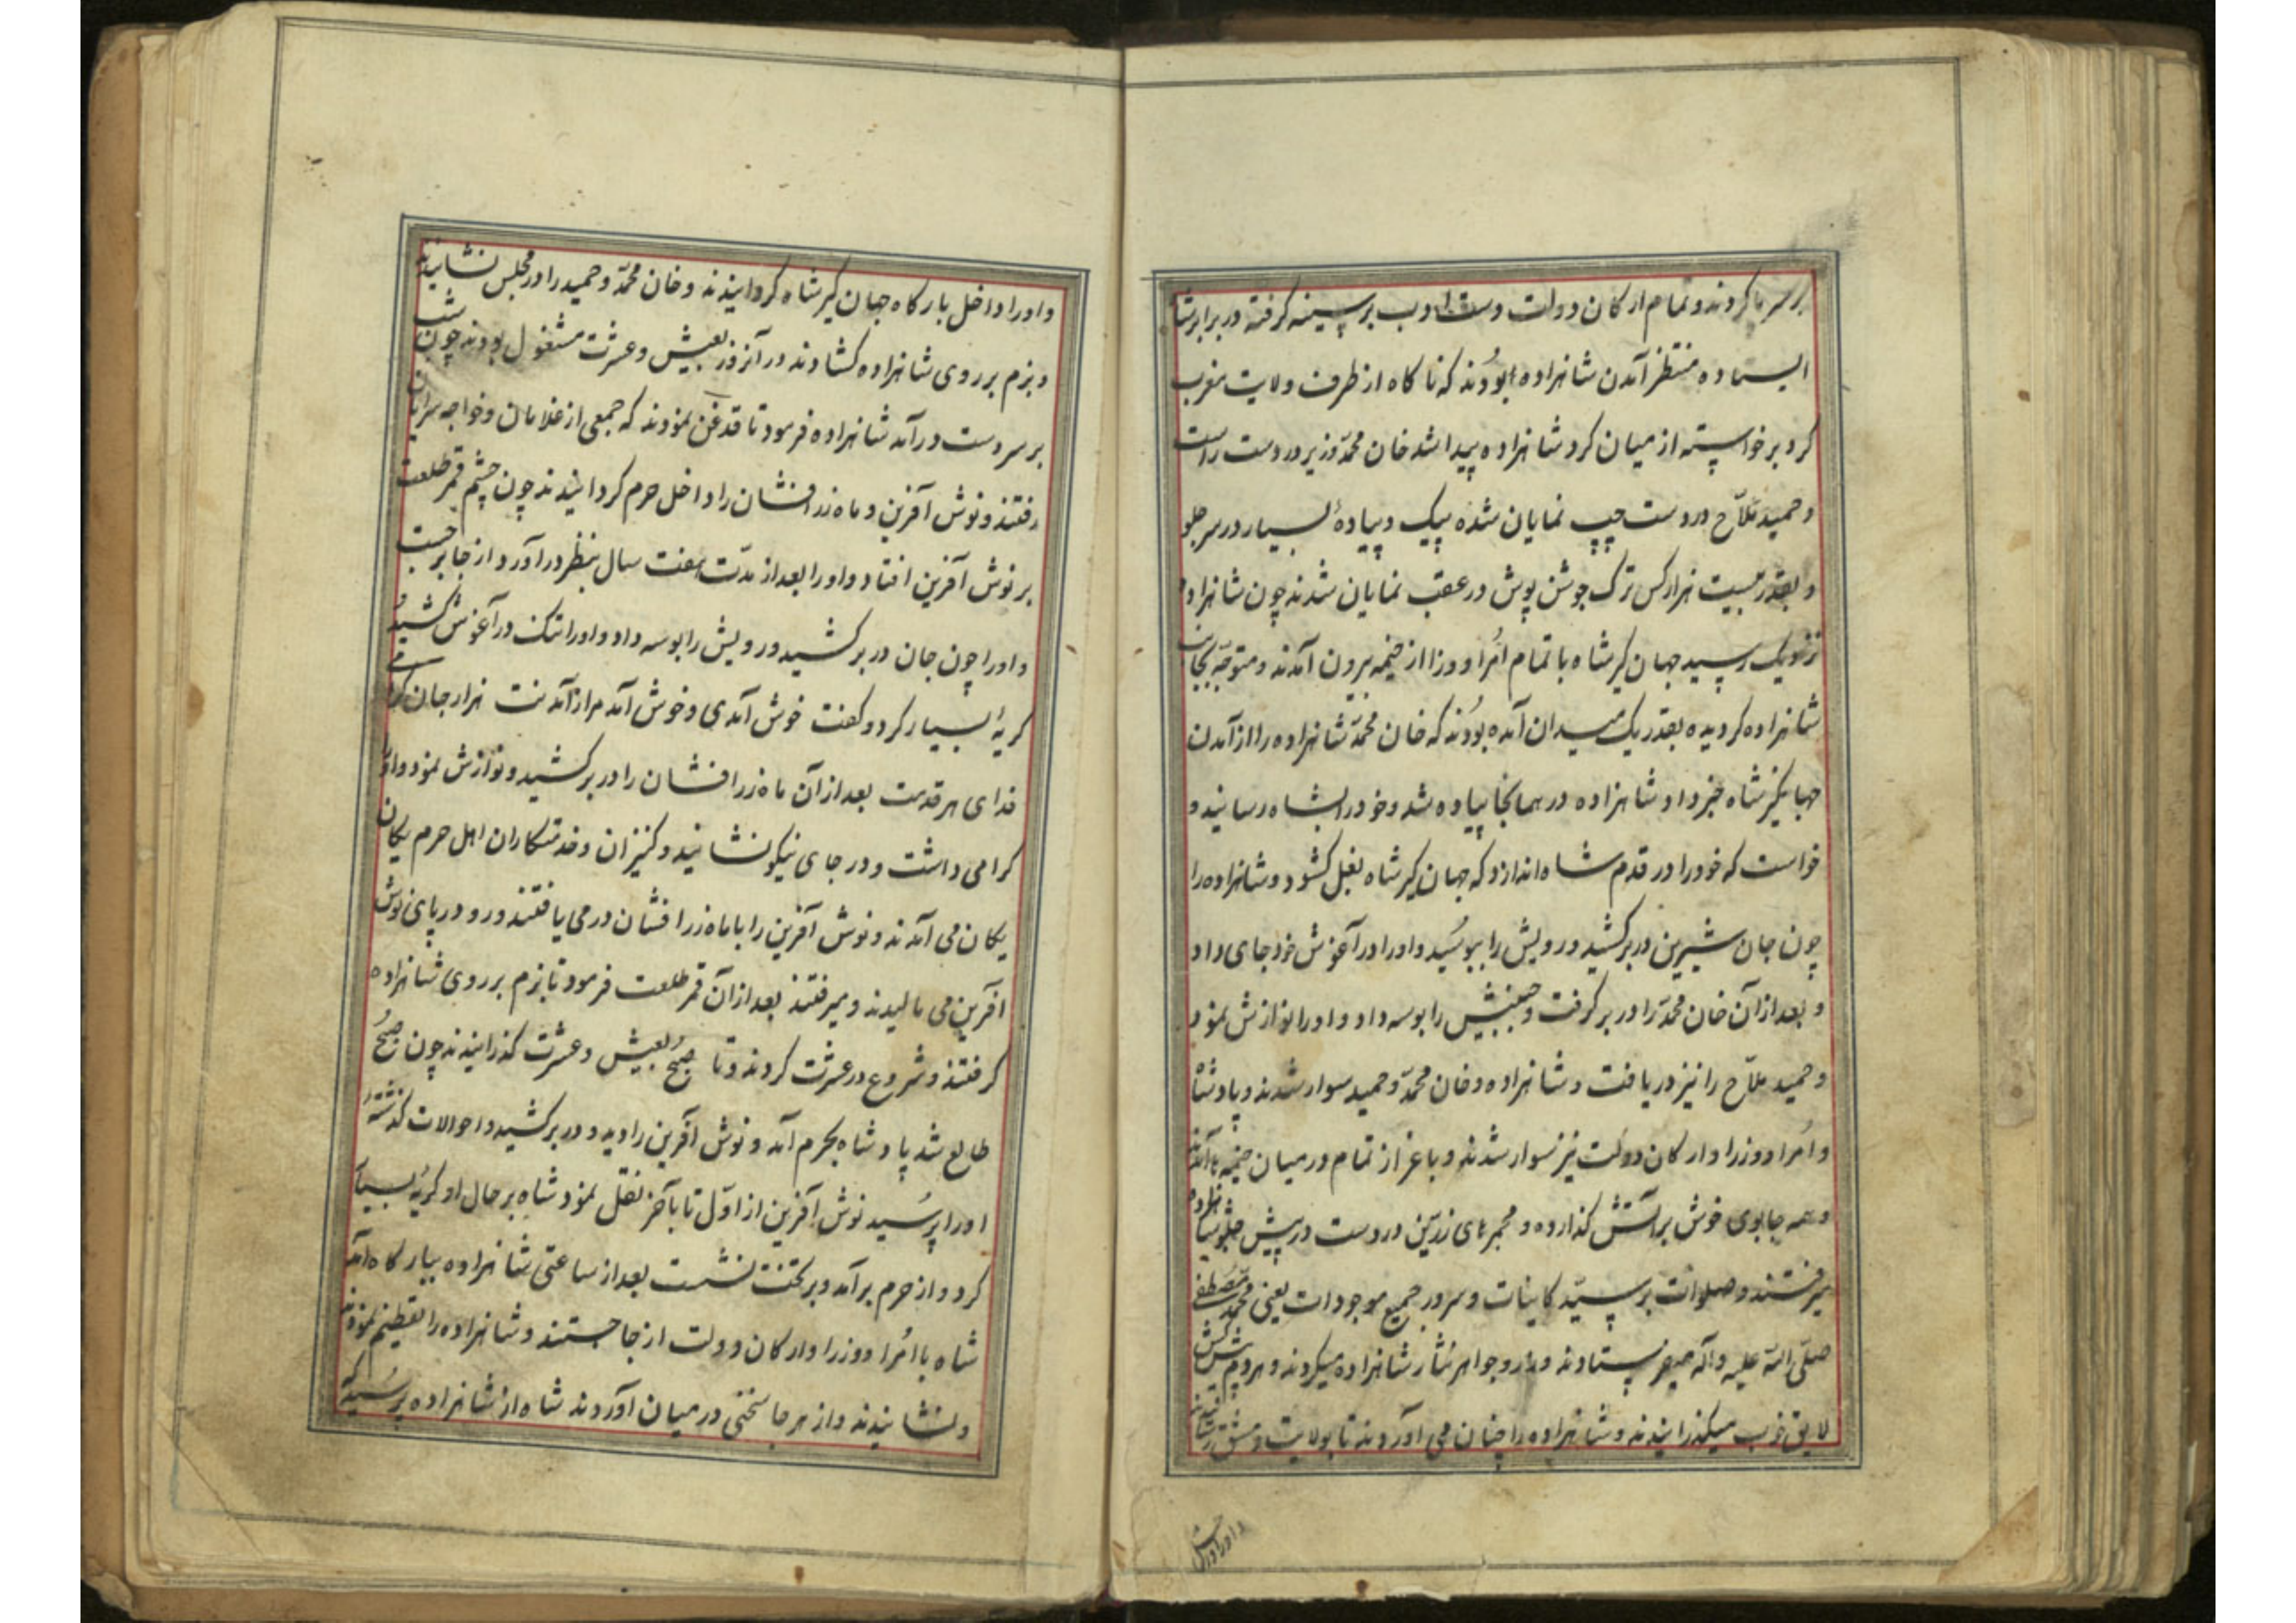 بر سر پا کردند و تمام ارکان دولت دست ادب بر سینه گرفته در برابر شاه
ایستاده منتظر آمدن شاهزاده بودند که ناکاه از طرف ولایت مغرب
کرد برخواسته از میان کرد شاهزاده پیدا شد خان محمد وزیر در دست راست
و حمید ملاح در دست چپ نمایان شده پیک و پیادهٔ بسیار در سر جلو
و بقدر بیست هزار کس ترک جوشن پوش در عقب نمایان شدند چون شاهزاده
نزدیک رسید جهان کیر شاه با تمام امرا و وزرا از خیمه بیرون آمدند و متوجه بجانب
شاهزاده کردیده بقدر یک میدان آمده بودند که خان محمد شاهزاده را از آمدن
جهانکیر شاه خبر داد شاهزاده در همانجا پیاده شد و خود را بشاه رسانید و
خواست که خود را در قدم شاه اندازد که جهان کیر شاه بغل کشود و شاهزاده را
چون جان شیرین در بر کشید و رویش را ببوسید و او را در آغوش خود جای داد
و بعد از آن خان محمد را در بر کرفت و جبینش را بوسه داد و او را نوازش نمود
و حمید ملاح را نیز دریافت و شاهزاده و خان محمد و حمید سوار شدند و پادشاه
و امرا و وزرا و ارکان دولت نیز سوار شدند و باعزاز تمام در میان خیمه ها آمدند
و همه جا بوی خوش بر آتش کذارده و مجمرهای زرین در دست در پیش جلو شاهزاده
میرفتند و صلوات بر سید کاینات و سرور جمیع موجودات یعنی محمد مصطفی
صلی الله علیه و آله میفرستادند و زر و جواهر نثار شاهزاده میکردند و هر دم پیشکش
لایق خوب میکذرانیدند و شاهزاده را چنان می آوردند تا بولایت دمشق رسانیدند
و او را داخل
و او را داخل بارکاه جهان کیر شاه کردانیدند و خان محمد و حمید را در مجلس نشانیدند
و بزم بر روی شاهزاده کشادند در آنروز بعیش و عشرت مشغول بودند چون شب
بر سر دست در آمد شاهزاده فرمود تا قدغن نمودند که جمعی از غلامان و خواجه سرایان
رفتند و نوش آفرین و ماه زرافشان را داخل حرم کردانیدند چون چشم قمر طلعت
بر نوش آفرین افتاد و او را بعد از مدت هفت سال بنظر در آورد از جا برجست
و او را چون جان در بر کشید و رویش را بوسه داد و او را تنک در آغوش کشید و
کریهٔ بسیار کرد و کفت خوش آمدی و خوش آمد مرا از آمدنت هزار جان کرامی
فدای هر قدمت بعد از آن ماه زرافشان را در بر کشید و نوازش نمود و او را
کرامی داشت و در جای نیکو نشانید و کنیزان و خدمتکاران اهل حرم یکان
یکان می آمدند و نوش آفرین را با ماه زرافشان در می یافتند و رو در پای نوش
آفرین می مالیدند و میرفتند بعد از آن قمر طلعت فرمود تا بزم بر روی شاهزاده
کرفتند و شروع در عشرت کردند و تا صبح بعیش و عشرت کذرانیدند چون صبح
طالع شد پادشاه بحرم آمد و نوش آفرین را دید و در بر کشید و احوالات کذشته
او را پرسید نوش آفرین از اول تا بآخر نقل نمود شاه بر حال او کریهٔ بسیار
کرد و از حرم بر آمد و بر تخت نشست بعد از ساعتی شاهزاده ببارکاه آمد
شاه با امرا و وزرا و ارکان دولت از جا جستند و شاهزاده را تعظیم نمودند
و نشانیدند و از هر جا سخنی در میان آوردند شاه از شاهزاده پرسید که